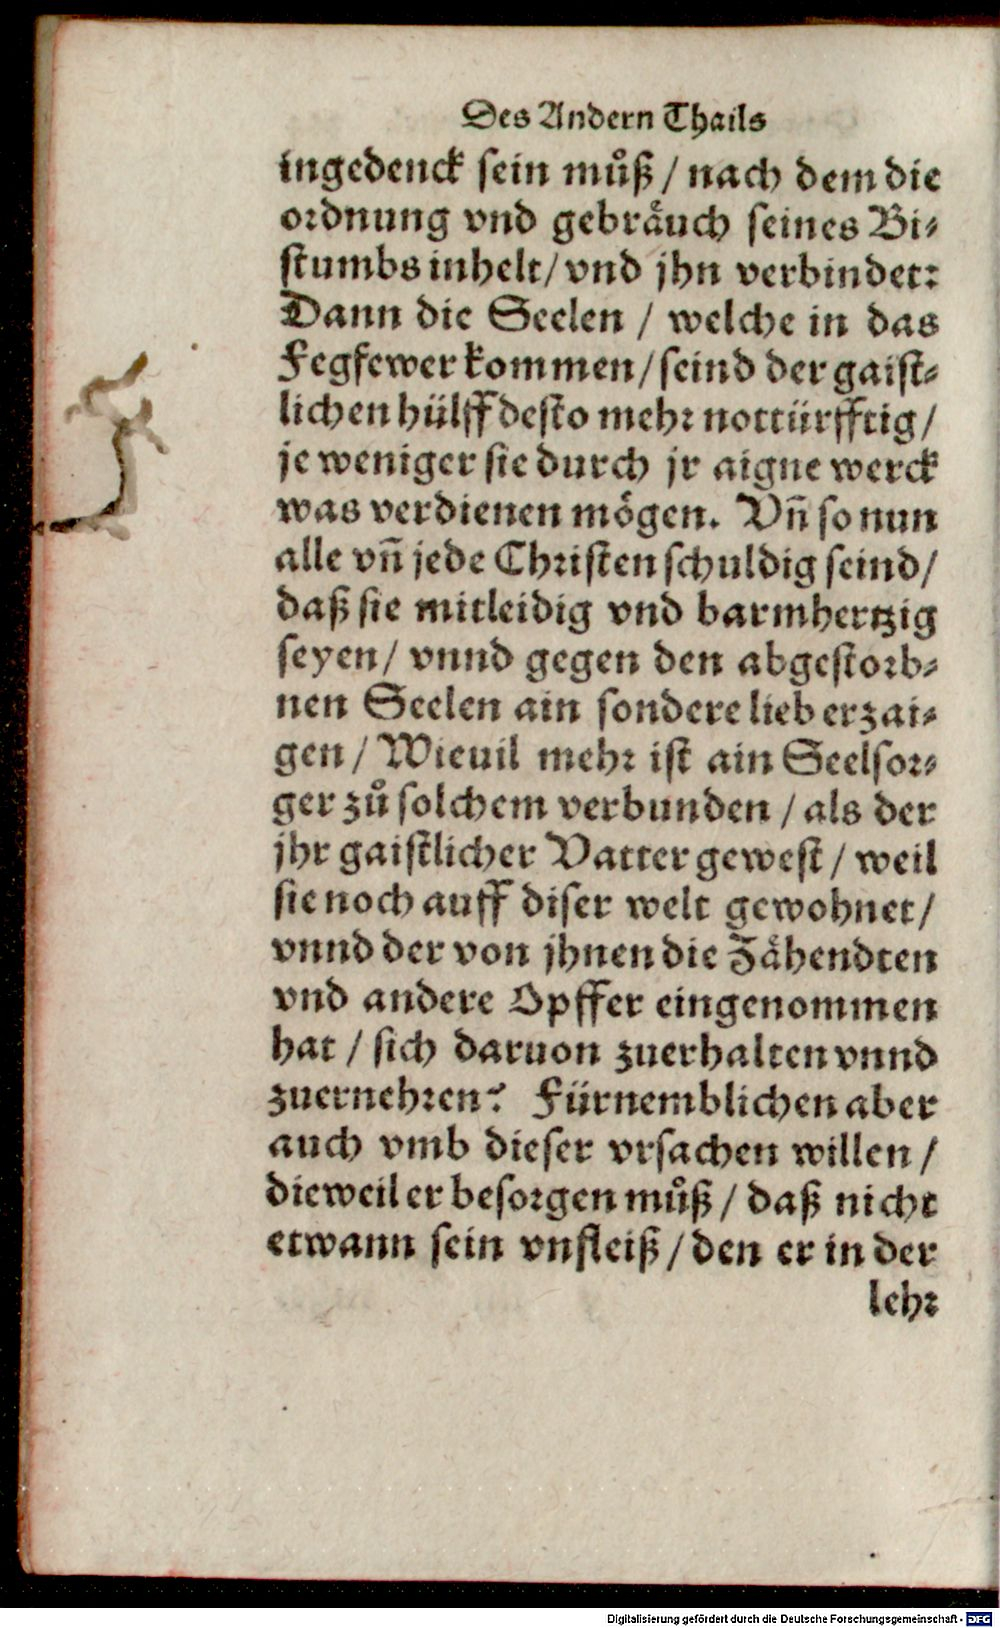 Des Andern Thails
ingedenck sein muͦß / nach dem die
ordnung vnd gebraͤuch seines Bi⸗
stumbs inhelt / vnd jhn verbindet:
Dann die Seelen / welche in das
Fegfewer kommen / seind der gaist⸗
lichen hülff desto mehr nottürfftig /
je weniger sie durch jr aigne werck
was verdienen moͤgen. Vñ so nun
alle vñ jede Christen schuldig seind /
daß sie mitleidig vnd barmhertzig
seyen / vnnd gegen den abgestorb⸗
nen Seelen ain sondere lieb erzai⸗
gen / Wieuil mehr ist ain Seelsor⸗
ger zuͦ solchem verbunden / als der
jhr gaistlicher Vatter gewest / weil
sie noch auff diser welt gewohnet /
vnnd der von jhnen die Zaͤhendten
vnd andere Opffer eingenommen
hat / sich daruon zuerhalten vnnd
zuernehren? Fürnemblichen aber
auch vmb dieser vrsachen willen /
dieweil er besorgen muͦß / daß nicht
etwann sein vnfleiß / den er in der
lehr
Digitalisierung gefördert durch die Deutsche Forschungsgemeinschaft - DFG